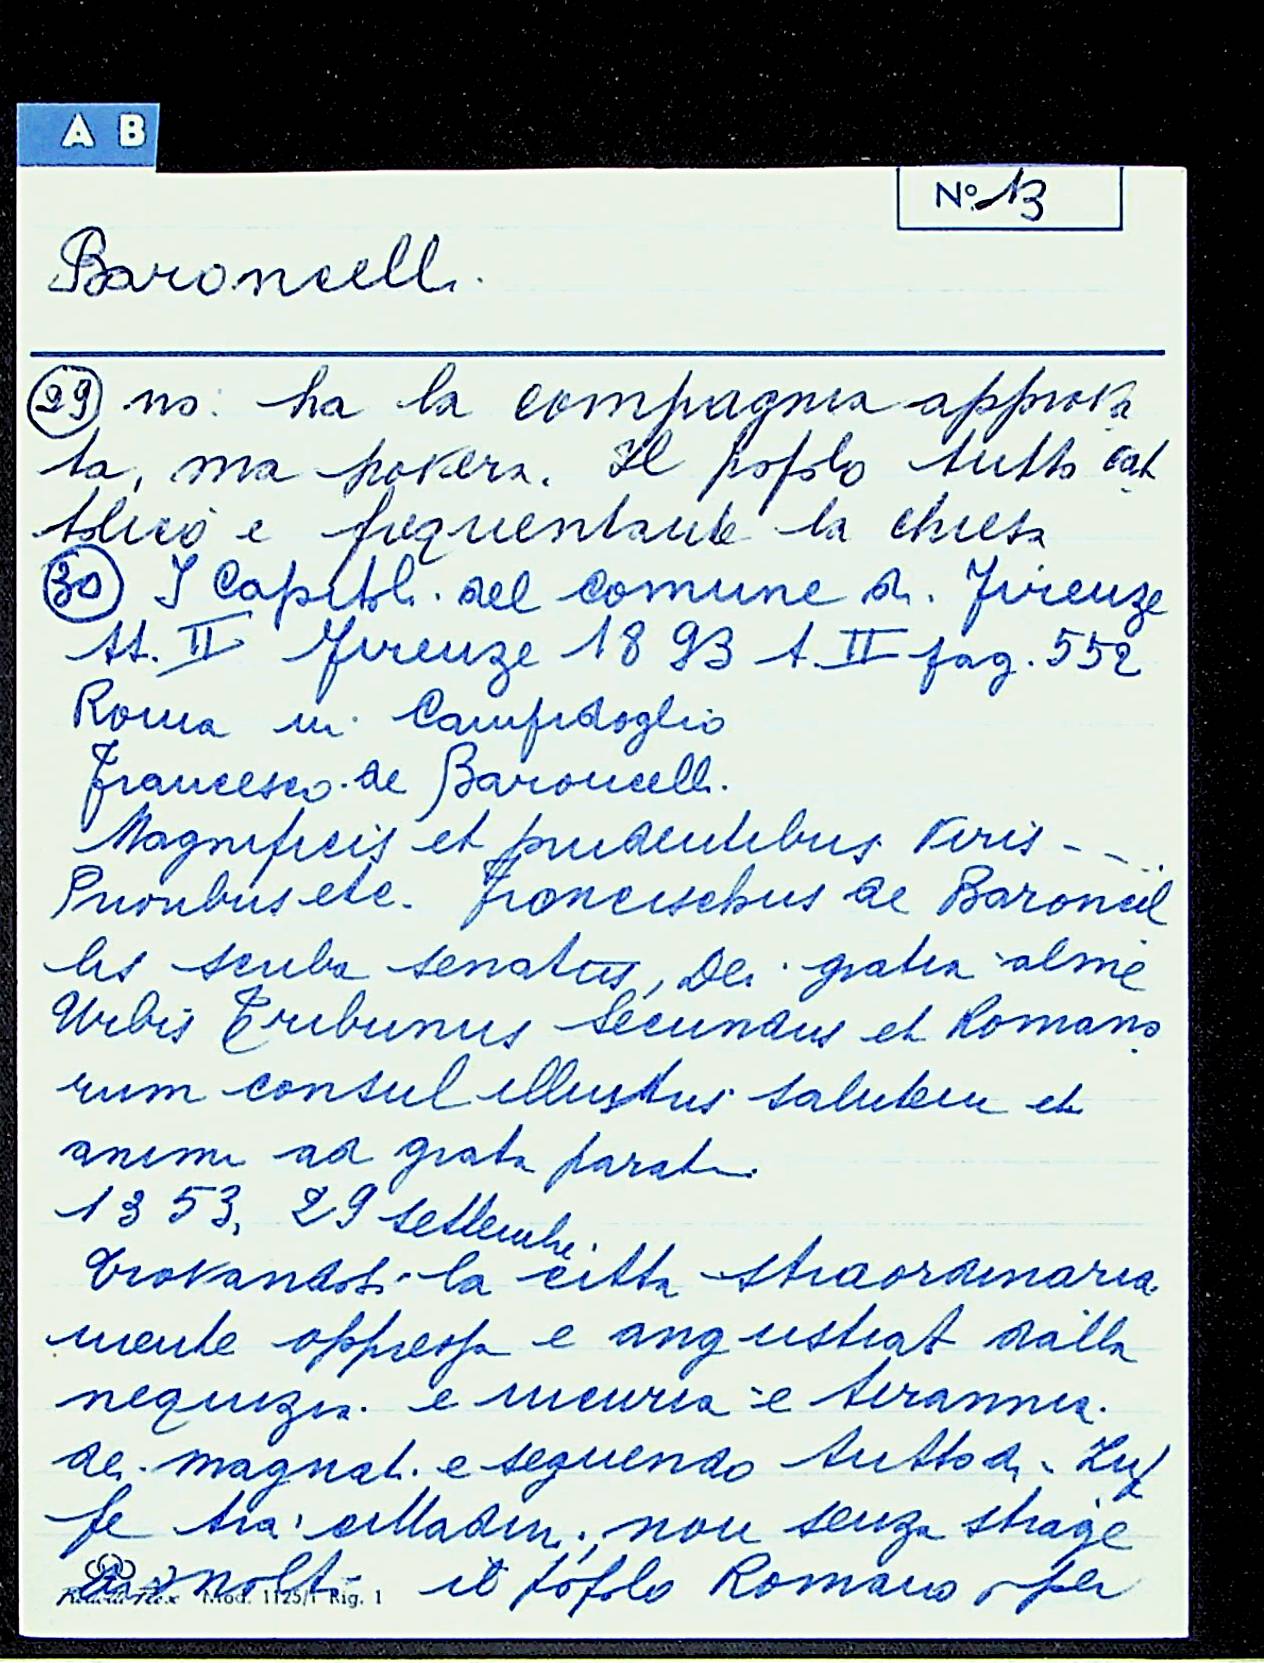 A B
No 13
Baroncelli.
29 no: ha la compagnia approva
ta, ma povera. Il popolo tutto cat
tolico e frequentante la chiesa
30 I Capitoli del comune di Firenze
tt. II Firenze 1893 t. II pag. 552
Roma in Campidoglio
Francesco de Baroncelli.
Magnificis et prudentibus viris - -
Prioribus etc. Francischus de Baroncel
lis scriba senatus, Dei gratia alme
Urbis Tribunus secundus et Romano
rum consul illustris salutem et
animi ad grata parati.
1353, 29 settembre.
Trovandosi la citta straordinaria
mente oppressa e angustiat dalla
nequizia e incuria e tirannia
dei magnati e seguendo tuttodi Zuf
fe tra cittadini, non senza strage
di molti il popolo Romano per
Mod. 1125/1 Rig. 1